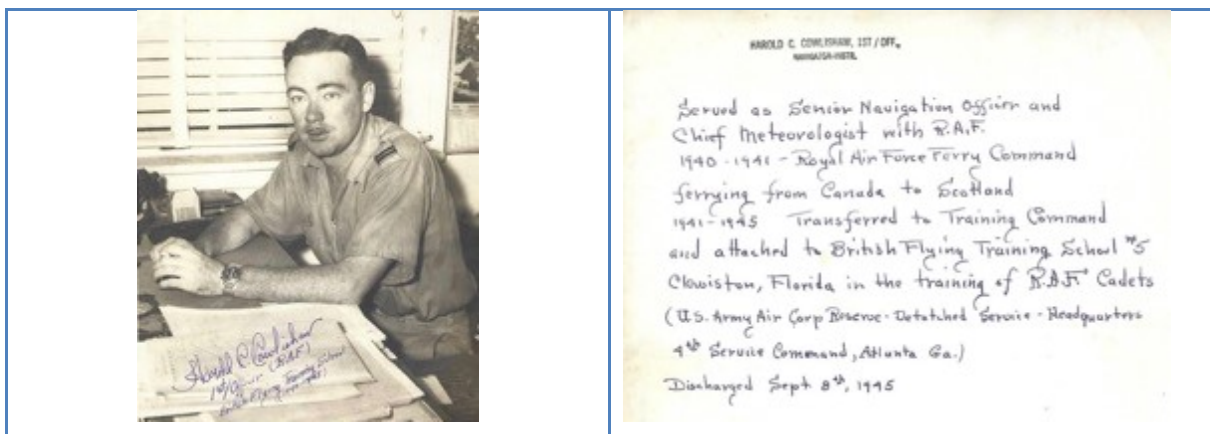 Harold C. Cowlishaw
1st/Officer (R.A.F.)
British Flying Training School
HAROLD C. COWLISHAW, 1ST/OFF.
Served as Senior Navigation Officer and
Chief Meteorologist with R.A.F.
1940-1941 - Royal Air Force Ferry Command
ferrying from Canada to Scotland
1941-1945 Transferred to Training Command
and attached to British Flying Training School #5
Clewiston, Florida in the training of R.A.F. Cadets
(U.S. Army Air Corp Reserve - Detatched Service - Headquarters
4th Service Command, Atlanta Ga.)
Discharged Sept 8th, 1945